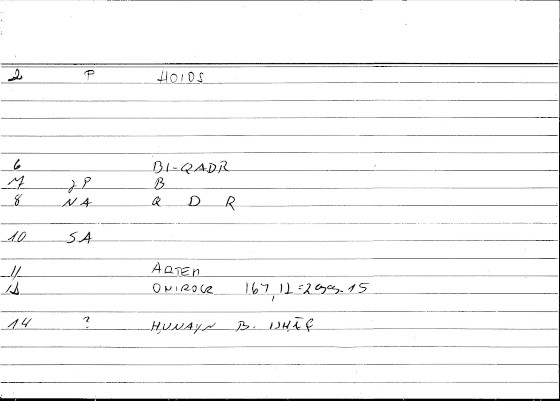 2 P HOIOS
6 BI-QADR
7 2P B
8 NA Q D R
10 SA
11 ARTEM
12 ONIROCR 167,12
14 ? HUNAYN B. ISHĀQ